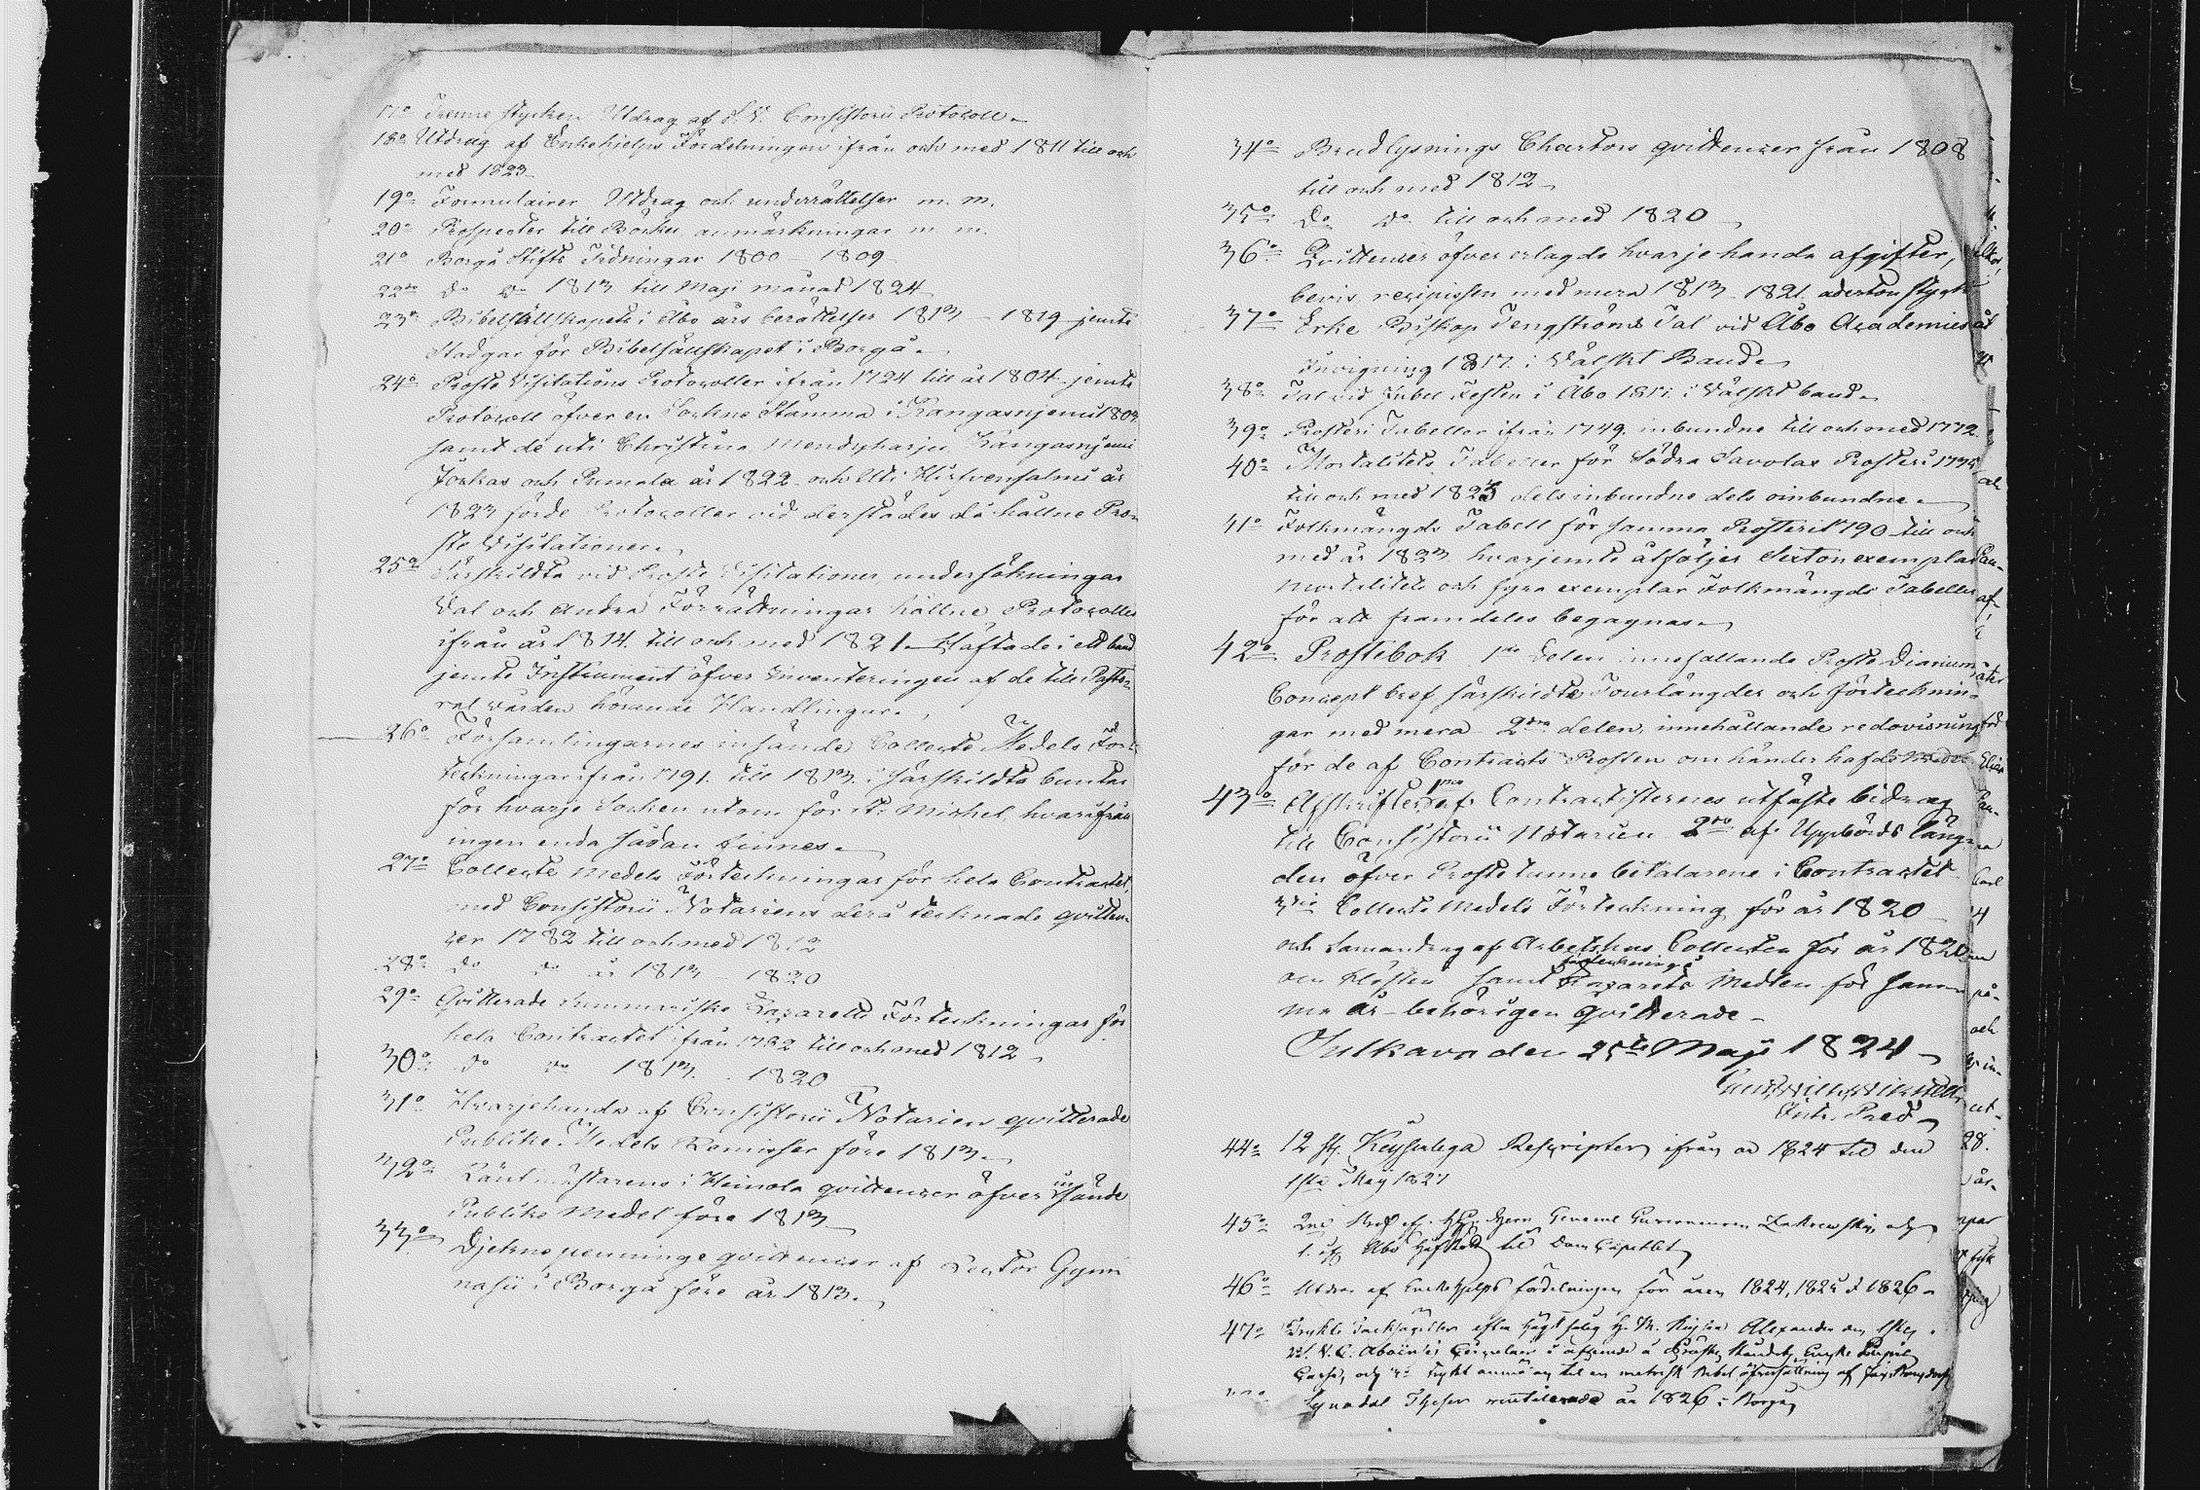 17o Trenne stycken Utdrag af S. V. Consistorii Protocoll
18o Utdrag af Enkehjelps Fördelningen ifrån och med 1811 till och
med 1823
19o Formulairer Utdrag och underrättelser m. m.
20o Prospecter till Böcker anmärkningar m m.
21o Borgå Stifts Tidningar 1800 – 1809
22do do do 1813 till Maji månad 1824
23o Bibelsällskapets i Åbo års berättelser 1813 – 1819 jemte
Stadgar för Bibelsällskapet i Borgå
24o Proste Visitations Protocoller ifrån 1724 till år 1804 jemte
Protocoll öfver en Sockne Stämma i Kangasnjemi 1803
samt de uti Christina Mendyharju Kangasnjemi
Jockas och Pumala år 1822 och uti Hirfvensalmi år
1823 förde Protocoller vid derstädes då hållne Pro-
ste Visitationer
25o Särskildta vid Proste Visitationer undersökningar
Val och andra Förrättningar hållne Protocoller
ifrån år 1814 till och med 1821 Häftade i ett band
jemte Instrument öfver Inventeringen af de till Pasto-
ral vården hörande Handlingar
26o Församlingarnes insände Collecte Medels För-
teckningar ifrån 1791 till 1813 i särskildta buntar
för hvarje Socken utom för St. Michel hvarifrån
ingen enda sådan finnes
27o Collecte Medels Förteckningar för hela Contractet
med Consistorii Notariens derå tecknade qvitten-
cer 1782 till och med 1812
28o do do år 1813 – 1820
29o Qvitterade Summariske Lazaretts Förteckningar för
hela Contractet ifrån 1792 till och med 1812
30o do do 1813 – 1820
31o Hvarjehanda af Consistorii Notarien qvitterade
Publike Medels Remisser före 1813
32o Räntmästarens i Heinola qvittencer öfver insände
Publike Medel före 1813
33o Djeknepenninge qvittencer af Rector Gymn
nasii i Borgå före år 1813
34o Brudlysnings Chartors qvittencer från 1808
till och med 1812
35o do do till och med 1820
36o Qvittencer öfver erlagde hvarjehanda afgifter,
bevis recipissen med mera 1813 – 1821 aderton stycke
37o Erke Biskop Tengströms Tal vid Åbo Academies
Invigning 1817 i Wälskt Band
38o Tal vid Jubel Festen i Åbo 1817 i Wälskt band
39o Prosteri Tabeller ifrån 1749 inbundne till och med 1772
40o Mortalitets Tabeller för Södra Savolax Prosteri 1775
till och med 1823 dels inbundne dels oinbundne
41o Folkmängds Tabell för samma Prosteri 1790 till och
med år 1823 hvarjemte åtföljer Sexton exemplar
Mortalitets och fyra exemplar Folkmängds Tabeller
för att framdeles begagnas
42o Prostebok 1a delen innehållande Proste Diarium
Concept bref särskildta Tourlängder och förtecknin-
gar med mera 2dra delen innehållande redovisning
för de af Contracts Prosten om händer hafde Medel
43o Afskrifter 1mo af Contractisternes utfäste bidrag
till Consistorii Notarien 2do af Uppbörds läng-
den öfver Prostetunne betalarene i Contractet
3tio Collecte Medels Förteckning för år 1820
och Samandrag af Arbetshus Collecten för år 1820
samt förtecknings Lazarets Medlen för sam-
ma år behörigen qvitterade
Sulkava den 25te Maji 1824
44o 12 st. Keyserliga Rescripter ifrån år 1824 til den
1sta Maij 1827
45o 2ne Bref af Herr General Gouverneuren Zakrewsky och
1 af Åbo Hofrätt til Dom Capitlet
46o Utdrag af Enkehjelps fördelningen för åren 1824, 1825 & 1826
47o Tryckte Tacksägelser efter Högst salig H. M. Kejsar Alexander den 1ste
Synodal Theser ventilerade år 1826 i Borgå